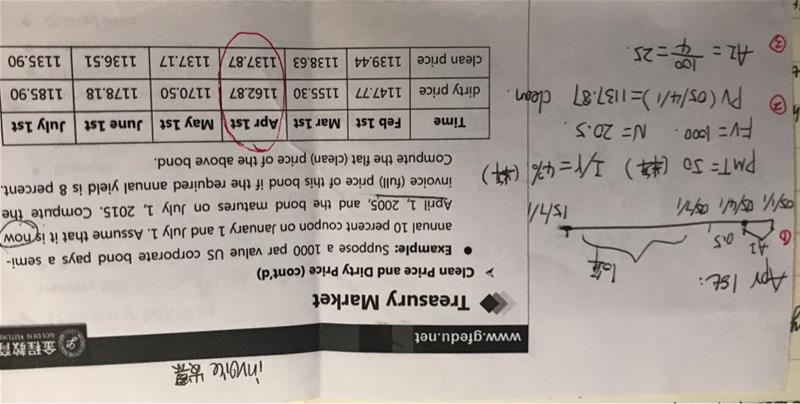 invoice
www.gfedu.net
金程教育
GOLDEN FUTURE
Treasury Market
➤ Clean Price and Dirty Price (cont'd)
● Example: Suppose a 1000 par value US corporate bond pays a semi-
annual 10 percent coupon on January 1 and July 1. Assume that it is now
April 1, 2005, and the bond matures on July 1, 2015. Compute the
invoice (full) price of this bond if the required annual yield is 8 percent.
Compute the flat (clean) price of the above bond.
Time Feb 1st Mar 1st Apr 1st May 1st June 1st July 1st
dirty price 1147.77 1155.30 1162.87 1170.50 1178.18 1185.90
clean price 1139.44 1138.63 1137.87 1137.17 1136.51 1135.90
Apr 1st:
① AI 0.5 10年
05/1/1 05/4/1 05/7/1 15/7/1
PMT = 50 (半年) I/Y = 4% (半年)
FV = 1000. N = 20.5.
② PV (05/4/1) = 1137.87 clean.
③ AI = 100/4 = 25.